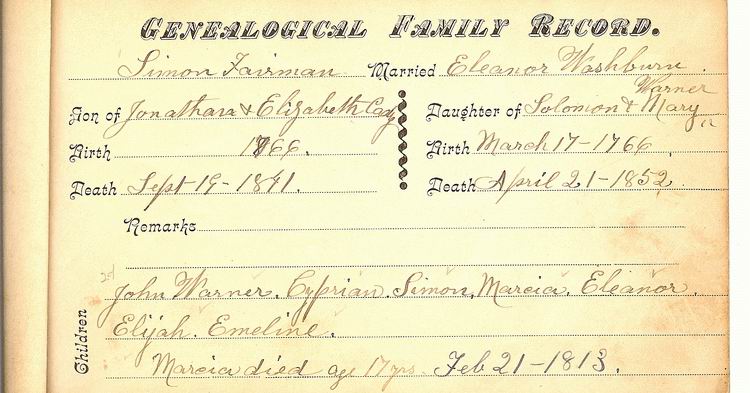 GENEALOGICAL FAMILY RECORD.
Simon Fairman Married Eleanor Washburn
Warner
Son of Jonathan & Elizabeth Daughter of Solomon & Mary
Birth 1766. Birth March 17-1766
Death Sept 19- Death April 21-1852
Remarks
John Warner. Cyprian. Simon, Marcia. Eleanor.
Children
Elijah. Emeline.
Marcia died age 17 yrs. Feb 21-1813.